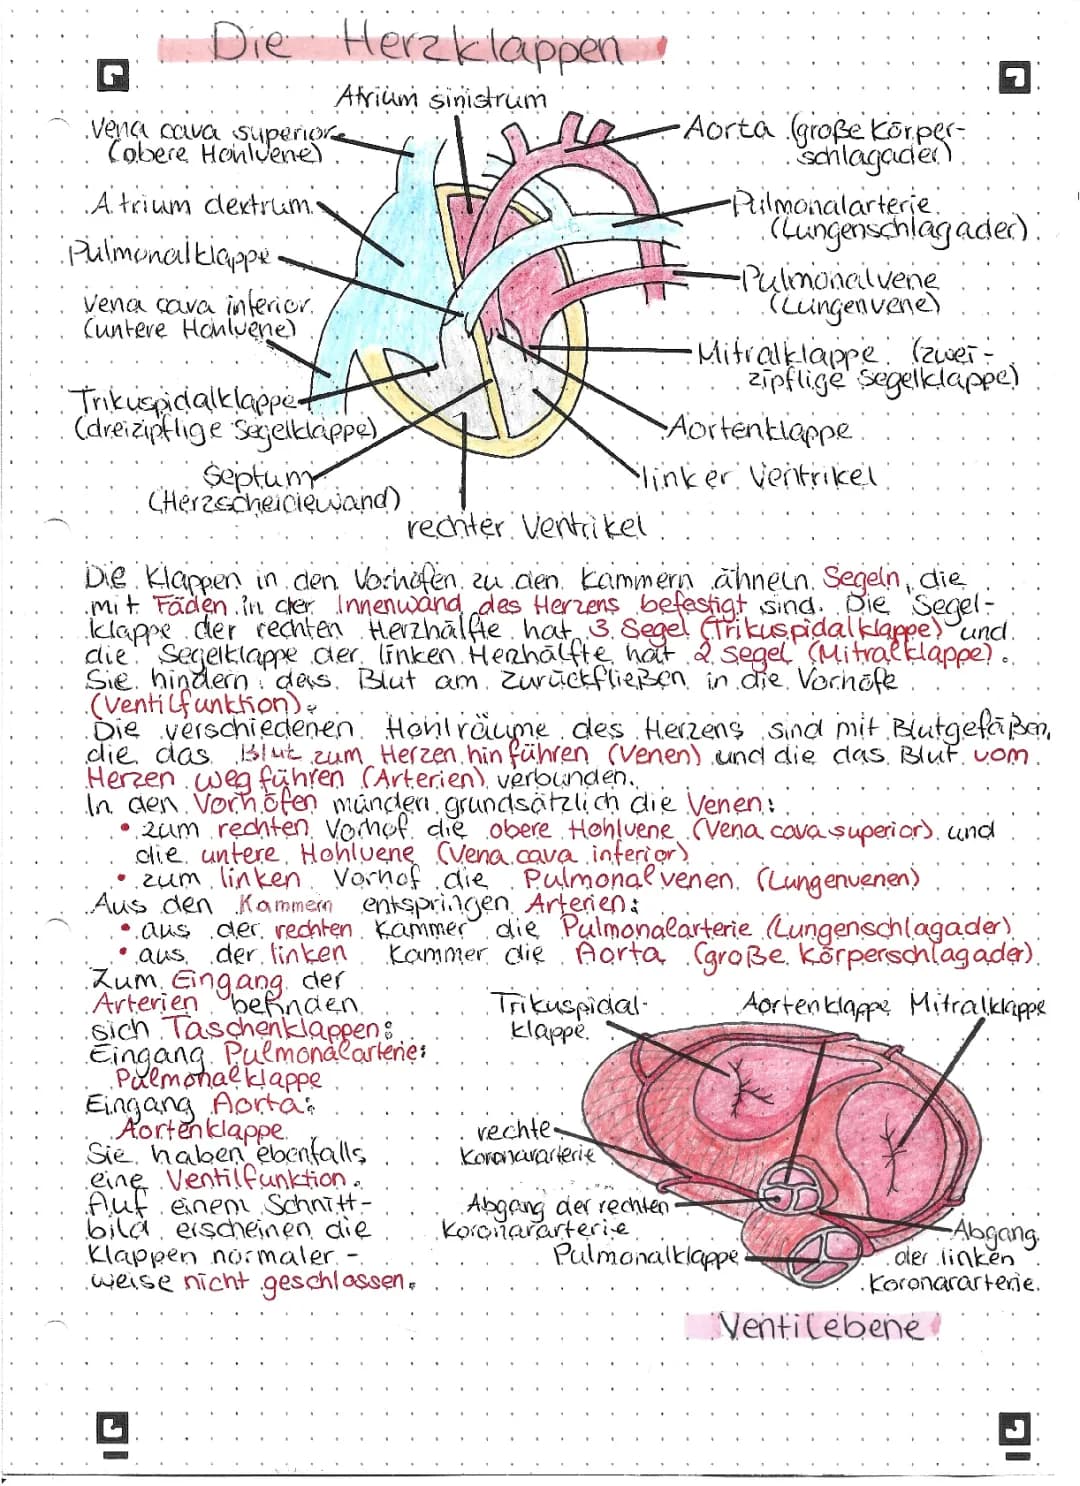 Die Herzklappen
Atrium sinistrum
Vena cava superior
(obere Hohlvene)
Aorta (große Körper-
schlagader)
Atrium dextrum
Pulmonalarterie
(Lungenschlagader)
Pulmonalklappe
Pulmonalvene
(Lungenvene)
vena cava inferior
(untere Hohlvene)
Mitralklappe (zwei-
zipflige Segelklappe)
Trikuspidalklappe
(dreizipflige Segelklappe)
Aortenklappe
Septum
(Herzscheidewand)
linker Ventrikel
rechter Ventrikel
Die Klappen in den Vorhöfen zu den Kammern ähneln Segeln, die
mit Fäden in der Innenwand des Herzens befestigt sind. Die Segel-
klappe der rechten Herzhälfte hat 3 Segel (Trikuspidalklappe) und
die Segelklappe der linken Herzhälfte hat 2 Segel (Mitralklappe).
Sie hindern das Blut am Zurückfließen in die Vorhöfe
(Ventilfunktion).
Die verschiedenen Hohlräume des Herzens sind mit Blutgefäßen,
die das Blut zum Herzen hinführen (Venen) und die das Blut vom
Herzen wegführen (Arterien) verbunden.
In den Vorhöfen münden grundsätzlich die Venen:
• zum rechten Vorhof die obere Hohlvene (Vena cava superior) und
die untere Hohlvene (Vena cava inferior)
• zum linken Vorhof die Pulmonalvenen (Lungenvenen)
Aus den Kammern entspringen Arterien:
• aus der rechten Kammer die Pulmonalarterie (Lungenschlagader)
• aus der linken Kammer die Aorta (große Körperschlagader).
Zum Eingang der
Arterien befinden
sich Taschenklappen:
Eingang Pulmonalarterie:
Pulmonalklappe
Eingang Aorta:
Aortenklappe
Sie haben ebenfalls
eine Ventilfunktion.
Auf einem Schnitt-
bild erscheinen die
Klappen normaler-
weise nicht geschlossen.
Trikuspidal-
klappe
Aortenklappe
Mitralklappe
rechte
Koronararterie
Abgang der rechten
Koronararterie
Pulmonalklappe
Abgang
der linken
Koronararterie.
Ventilebene